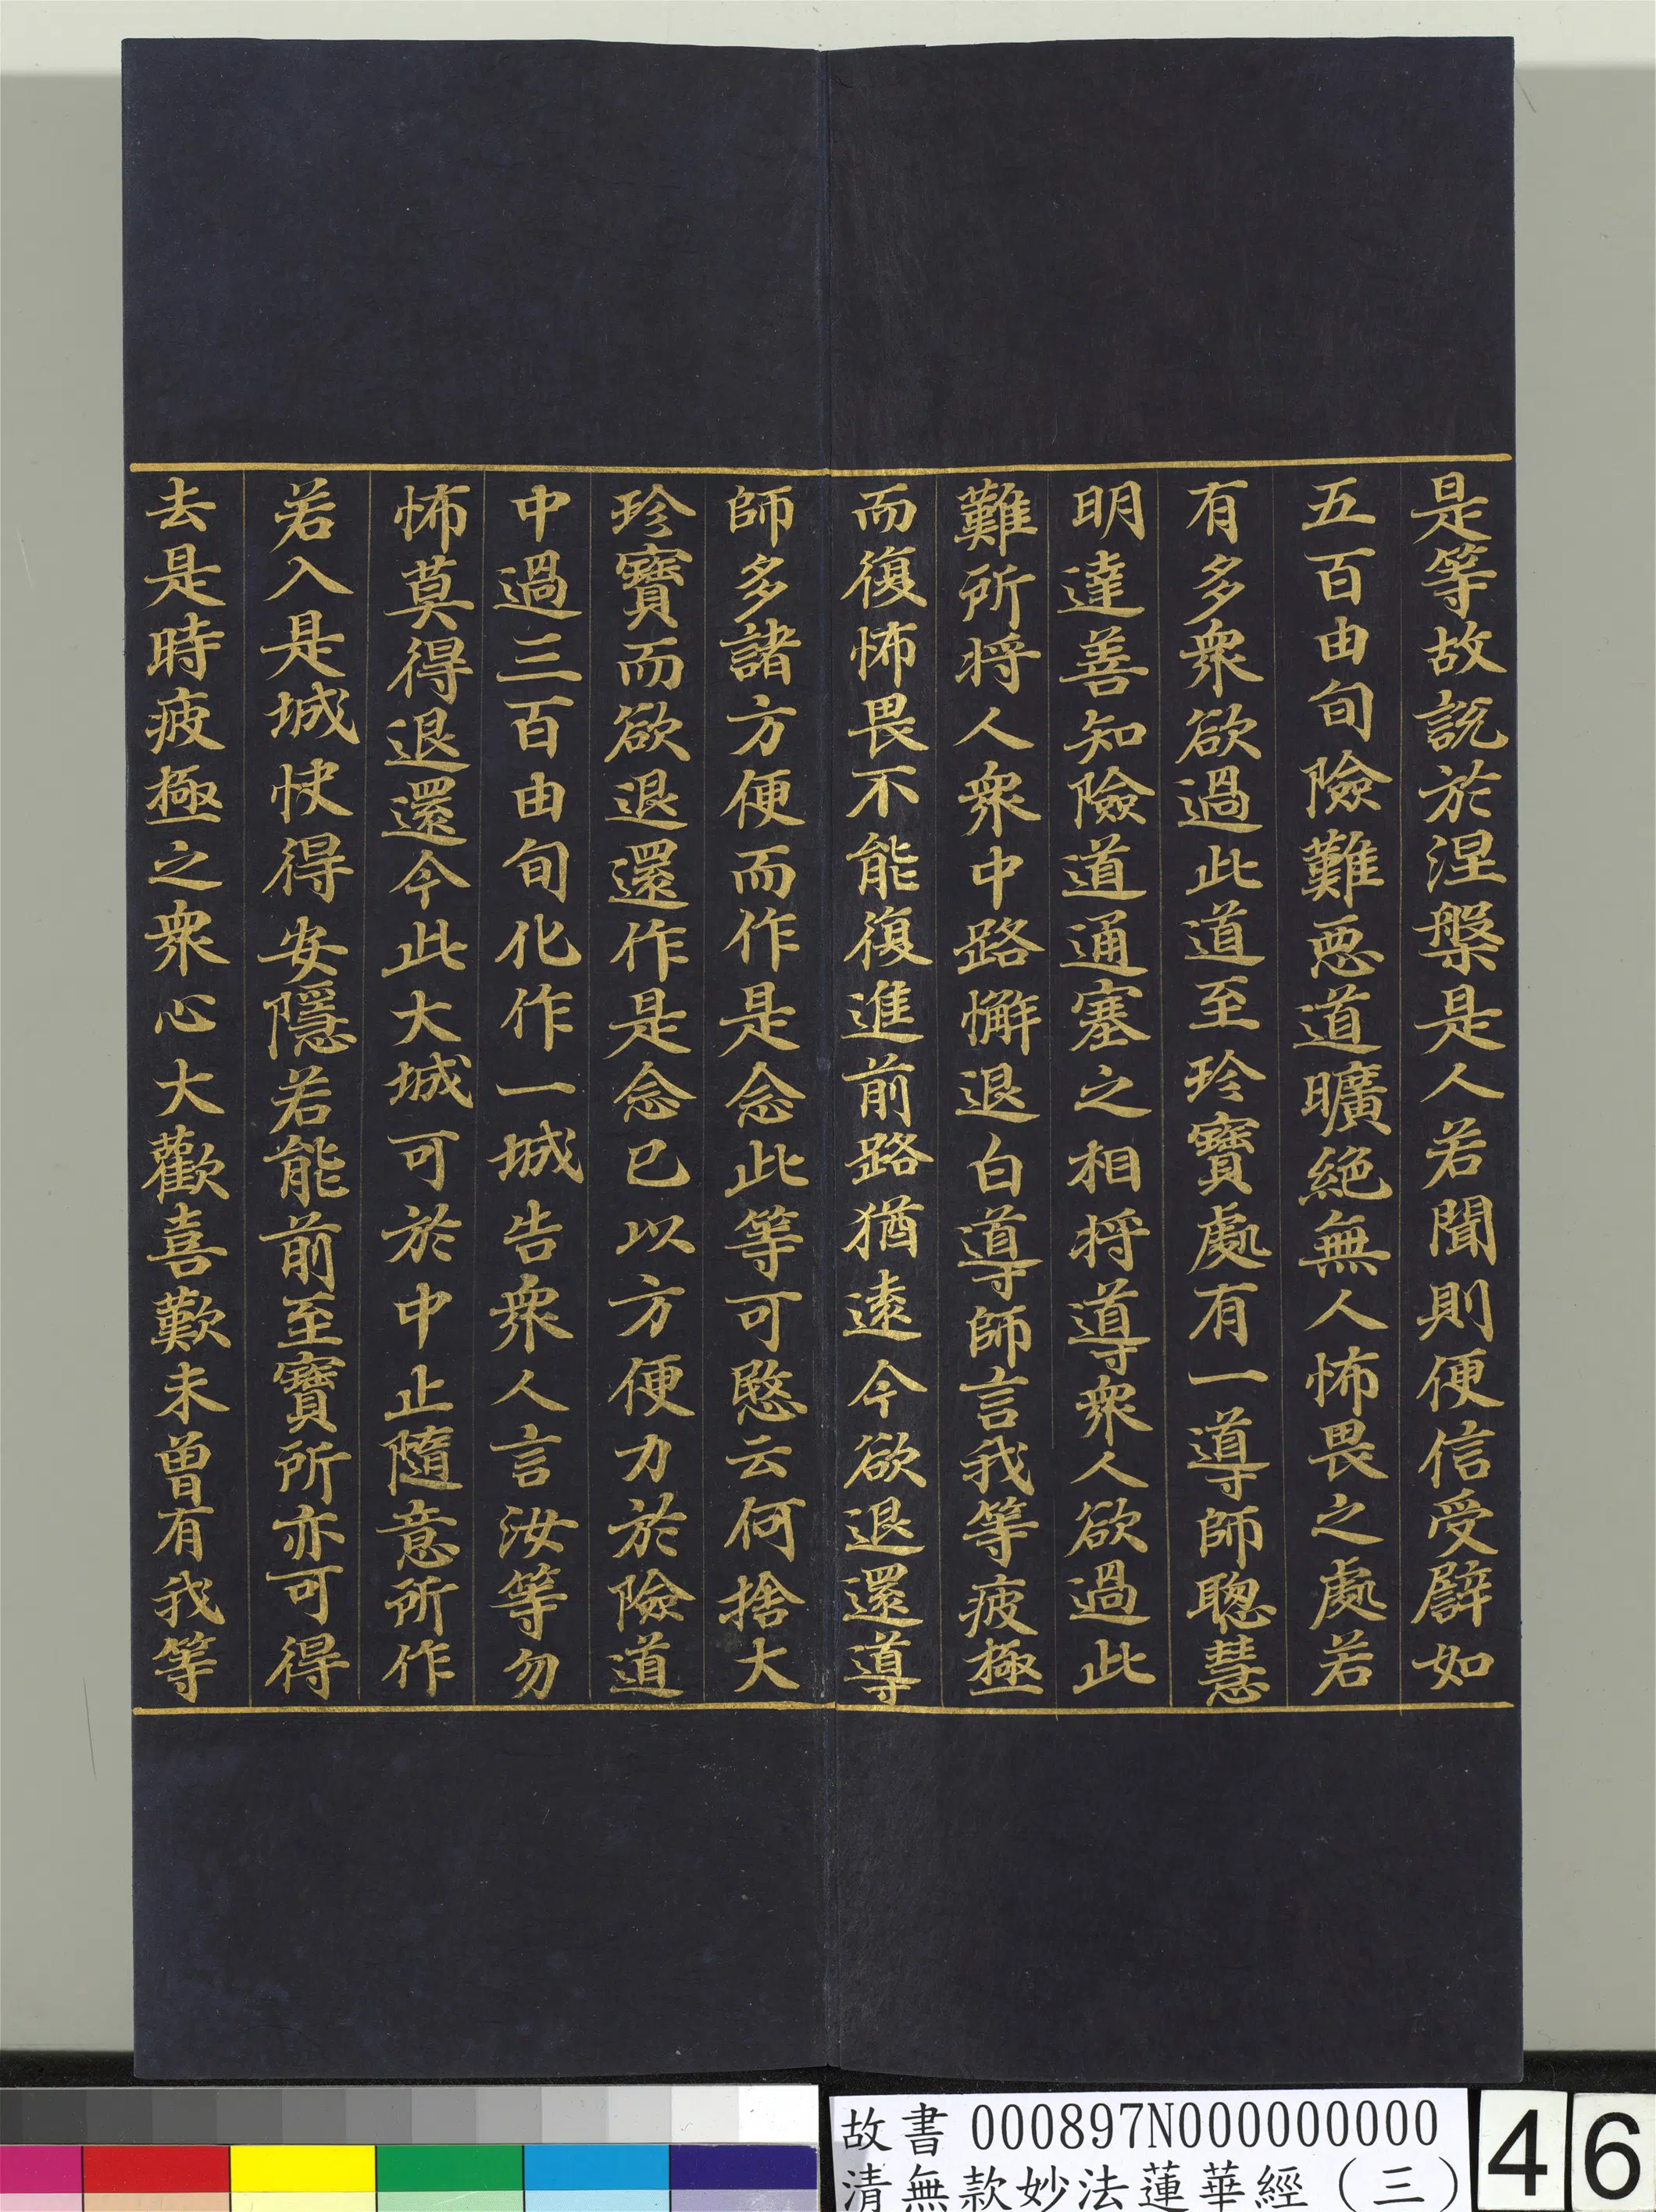 是等故說於涅槃是人若聞則便信受譬如
五百由旬險難惡道曠絕無人怖畏之處若
有多衆欲過此道至珍寶處有一導師聰慧
明達善知險道通塞之相将導衆人欲過此
難所将人衆中路懈退白導師言我等疲極
而復怖畏不能復進前路猶遠今欲退還導
師多諸方便而作是念此等可愍云何捨大
珍寶而欲退還作是念已以方便力於險道
中過三百由旬化作一城告衆人言汝等勿
怖莫得退還今此大城可於中止隨意所作
若入是城快得安隱若能前至寶所亦可得
去是時疲極之衆心大歡喜歎未曾有我等
故書 000897N000000000
清無款妙法蓮華經（三）
46